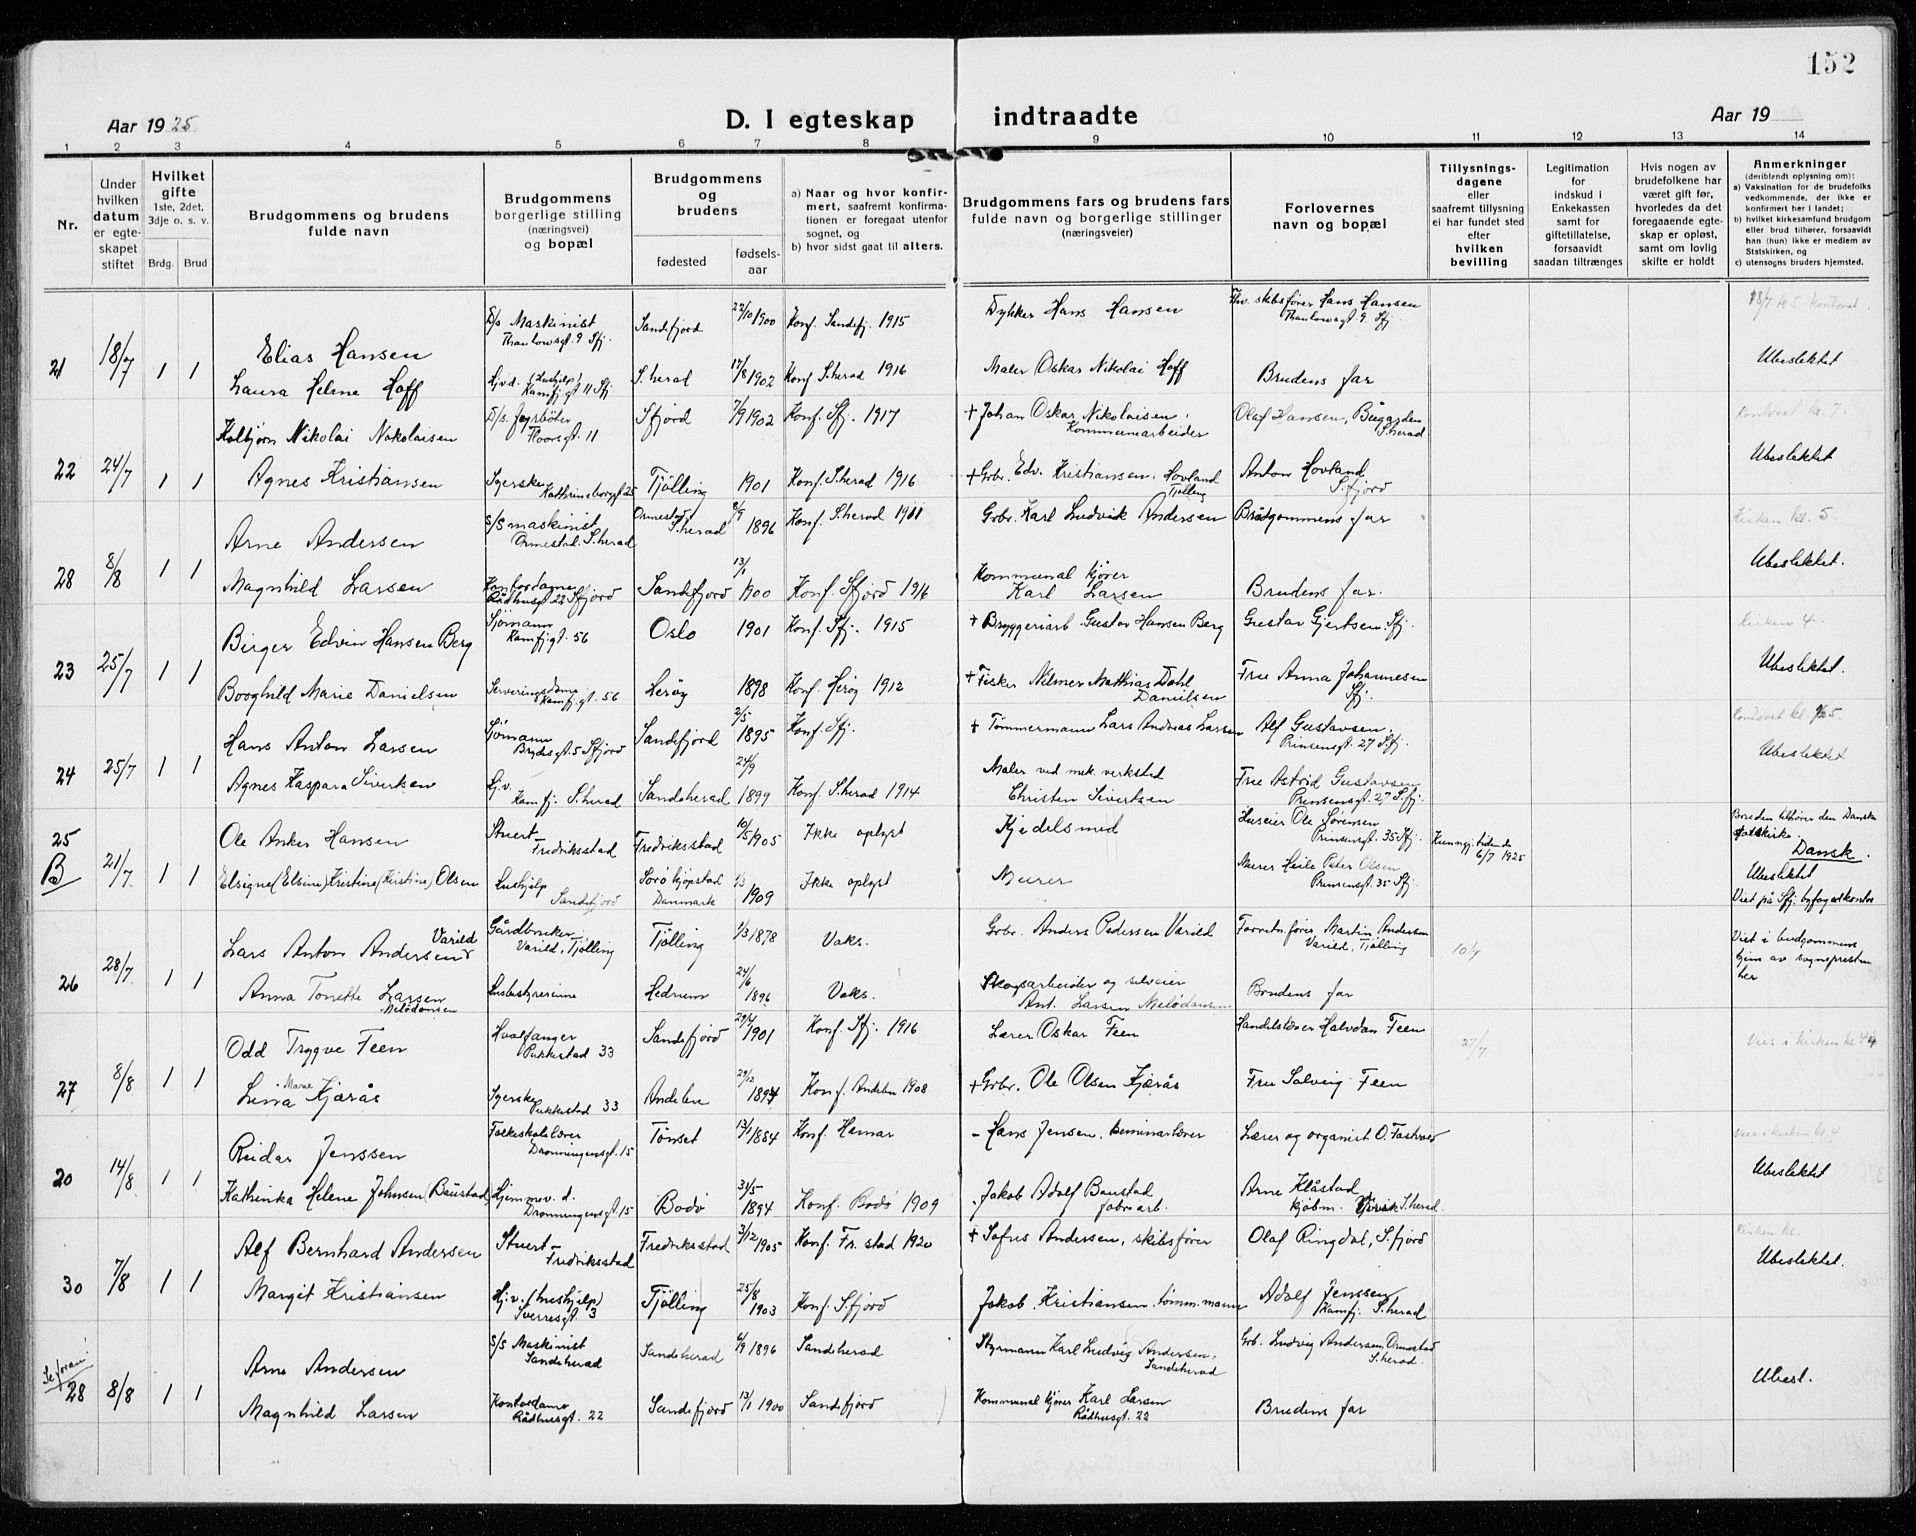 152
Aar 1925
D. I egteskap indtraadte
Aar 19
1 2 3 4 5 6 7 8 9 10 11 12 13 14
Nr.
Under hvilken datum er egteskapet stiftet
Hvilket gifte 1ste, 2det, 3dje o. s. v.
Brdg. Brud
Brudgommens og brudens fulde navn
Brudgommens borgerlige stilling (næringsvei) og bopæl
Brudgommens og brudens
fødested
fødselsaar
a) Naar og hvor konfirmert, saafremt konfirmationen er foregaat utenfor sognet, og
b) hvor sidst gaat til alters.
Brudgommens fars og brudens fars fulde navn og borgerlige stillinger (næringsveier)
Forlovernes navn og bopæl
Tillysningsdagene eller saafremt tillysning ei har fundet sted efter hvilken bevilling
Legitimation for indskud i Enkekassen samt for giftetillatelse, forsaavidt saadan tiltrænges
Hvis nogen av brudefolkene har været gift før, hvorledes da det foregaaende egteskap er opløst, samt om lovlig skifte er holdt
Anmerkninger (deriblandt oplysning om):
a) Vaksination for de brudefolks vedkommende, der ikke er konfirmert her i landet;
b) hvilket kirkesamfund brudgom eller brud tilhører, forsaavidt han (hun) ikke er medlem av Statskirken, og
c) utensogns bruders hjemsted.
21 18/7 1 1
Elias Hansen D/s Maskinist Thaulowsgt. 9 Sfj. Sandefjord 22/10 1900 Konf. Sandefj. 1915 Dykker Hans Hansen Fhv. skibsfører Hans Hansen Thaulowsgt. 9. Sfj.
Laura Helene Hoff Hjv.d. (Hushjelp) Kamfj.gt 11 Sfj. S.herad 17/8 1902 Konf. S.herad 1916 Maler Oskar Nikolai Hoff Brudens far Ubeslektet
22 24/7 1 1
Kolbjørn Nikolai Nikolaisen D/s. fyrbøter Floorsgt. 11 Sfjord 7/9 1902 Konf. Sfj. 1917 + Johan Oskar Nikolaisen, Kommunearbeider Olaf Hansen, Bugården S.herad
Agnes Kristiansen Syerske Kathrineborggt 25 Tjølling 1901 Konf. S.herad 1916 + Grbr. Edv. Kristiansen, Hovland Tjølling Anton Hovland S.fjord Ubeslektet
28 8/8 1 1
Arne Andersen S/S maskinist Ormestad. S.herad Ormestad S.herad 8/9 1896 Konf. S.herad 1911 Grbr. Karl Ludvik Andersen Brudgommens far Kirken kl. 5
Magnhild Larsen Kontordame Rådhusgt 22 Sfjord Sandefjord 13/1 1900 Konf. Sfjord 1916 Kommunal kjører Karl Larsen Brudens far. Ubeslektet.
23 25/7 1 1
Birger Edvin Hansen Berg Sjømann Kamfj.gt. 56 Oslo 1901 Konf. Sfj. 1915 + Bryggeriarb. Gustav Hansen Berg Gustav Gjertsen. Sfj. Kirken 4
Borghild Marie Danielsen Serveringsdame Kamfj.gt. 56 Herøy 1898 Konf. Herøy 1912 + Fisker Nilmer Matthias Dahl Danielsen Fru Anna Johannesen Sfj. Ubeslektet.
24 25/7 1 1
Hans Anton Larsen Sjømann Brydesgt. 5 Sfjord Sandefjord 2/5 1895 Konf. Sfj. + Tømmermann Lars Andreas Larsen Alf Gustavsen. Prinsensgt. 27 Sfj.
Agnes Kaspara Sivertsen Hj.v. Kamfj. S.herad Sandeherad 24/9 1899 Konf. S.herad 1914 Maler ved mek. verksted Christen Sivertsen Fru Astrid Gustavsen Prinsensgt. 27 S.fj. Ubeslektet
25 B 21/7 1 1
Ole Anker Hansen Stuert Fredriksstad Fredriksstad 10/5 1905 Ikke oplyst Kjedelsmed Huseier Ole Sørensen Prinsensgt. 35 Sfj. Kunngj. tidende 6/7 1925 Bruden tilhører den Danske folkekirke. Dansk.
Elsigne (Elsine) Kristine (Kirstine) Olsen Hushjelp Sandefjord Sorø kjøpstad Danmark 1/3 1909 Ikke oplyst Murer Murer Heile Peter Olsen Prinsensgt. 35 Sfj. Ubeslektet Viet på Sfj. byfogedkontor
26 28/7 1 1
Lars Anton Andersen Varild Gårdbruker Varild, Tjølling Tjølling 1/3 1878 Vaks. Grbr. Anders Pedersen Varild Forretn.fører, Martin Andersen Varild, Tjølling 10/7 Viet i brudgommens hjem av sognepresten her
Anna Tonette Larsen Melødamsen Husbestyrerinne Hedrum 24/6 1896 Vaks. Skogsarbeider og selveier Ant. Larsen Melødamsen Brudens far
27 8/8 1 1
Odd Trygve Feen Hvalfanger Pukkestad 33 Sandefjord 29/4 1901 Konf. Sfj. 1916 Lærer Oskar Feen Handelslærer Halvdan Feen 27/7
Lina Marie Kjærås Syerske Pukkestad 33 Andebu 29/12 1894 Konf. Andebu 1908 + Grbr. Ole Olsen Kjærås Fru Solveig Feen
20 14/8 1 1
Reidar Jenssen Folkeskolelærer Dronningensgt. 15 Tønset 13/1 1884 Konf. Hamar - Hans Jensen, seminarlærer Lærer og organist O. Fastvold
Kathinka Helene Johnsen (Baustad) Hjemmev. d. Dronningensgt. 15 Bodø 31/5 1894 Konf. Bodø 1909 Jakob Adolf Baustad fabr.arb. Arne Klåstad kjøbm. S.herad. Ubeslektet
30 7/8 1 1
Alf Bernhard Andersen Stuert Fredriksstad Fredriksstad 3/12 1905 Konf. Fr.stad 1920 + Sofus Andersen, skibsfører Olaf Ringdal, S.fjord Kirken kl.
Margit Kristiansen Hj.v. (hushjelp) Sverresgt. 3 Tjølling 25/8 1903 Konf. S.fjord Jakob Kristiansen. tømm.mann Adolf Jenssen Kamfj. S.herad Ubeslektet.
Se foran! 28 8/8 1 1
Arne Andersen S/S Maskinist Sandeherad Sandeherad 6/9 1896 Sandeherad Styrmann Karl Ludvig Andersen, Sandeherad Grb. Ludvig Andersen Ormestad S.herad.
Magnhild Larsen Kontordame Rådhusgt. 22 Sandefjord 13/1 1900 Sandefjord Kommunal kjører Karl Larsen Rådhusgt. 22 Brudens far Ubesl.